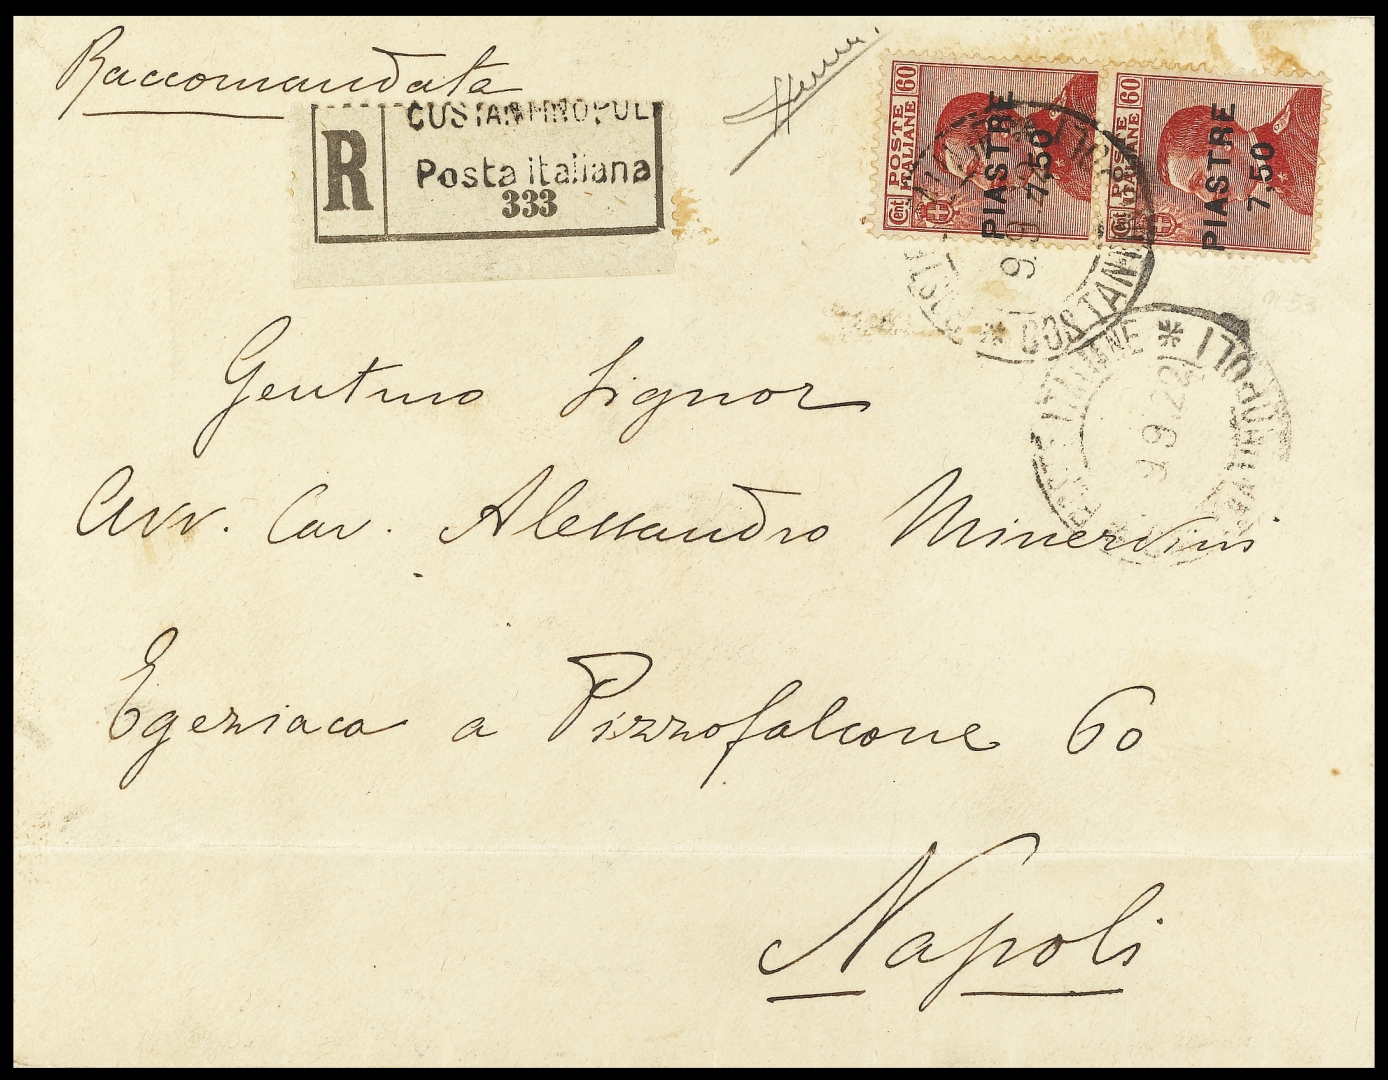 Raccomandata
R
COSTANTINOPOLI
Posta italiana
333
60
POSTE
ITALIANE
Cent
PIASTRE
7,50
60
POSTE
ITALIANE
Cent
PIASTRE
7,50
COSTANTI
9.9.
ITALIANE * NOPOLI
9.9.22
Gentmo Signor
Avv. Cav. Alessandro Minervini
Egeziaca a Pizzofalcone 60
Napoli